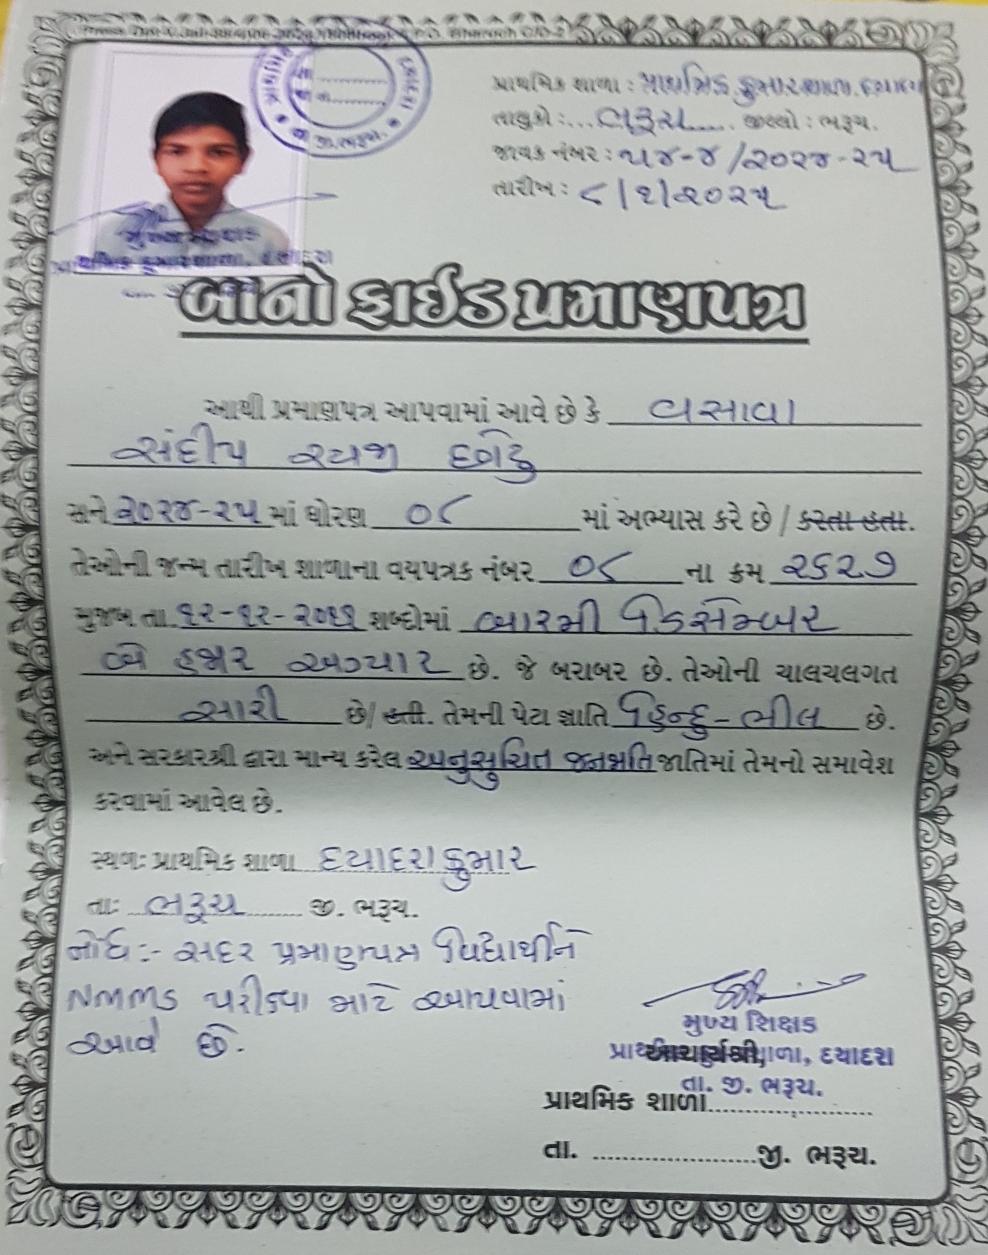 પ્રાથમિક શાળા : પ્રાથમિક કુમારશાળા, દયાદરા
તાલુકો :...ભરૂચ..... જીલ્લો : ભરૂચ.
જાવક નંબર : ૫૪-૪/૨૦૨૪-૨૫
તારીખ : ૮/૧/૨૦૨૫
જી.ભરૂચ.
મુખ્ય શિક્ષક
પ્રાથમિક કુમારશાળા, દયાદરા
બોનોફાઈડ પ્રમાણપત્ર
આથી પ્રમાણપત્ર આપવામાં આવે છે કે વસાવા
સંદીપ
સને ૨૦૨૪-૨૫ માં ધોરણ ૦૮ માં અભ્યાસ કરે છે / કરતા હતા.
તેઓની જન્મ તારીખ શાળાના વયપત્રક નંબર ૦૮ ના ક્રમ ૨૬૨૭
મુજબ તા ૧૨-૧૨-૨૦૧૧ શબ્દોમાં બારમી ડિસેમ્બર
બે હજાર અગ્યાર છે. જે બરાબર છે. તેઓની ચાલચલગત
સારી છે/ હતી. તેમની પેટા જ્ઞાતિ હિન્દુ-ભીલ છે.
અને સરકારશ્રી દ્વારા માન્ય કરેલ અનુસુચિત જનજાતિ જાતિમાં તેમનો સમાવેશ
કરવામાં આવેલ છે.
સ્થળ: પ્રાથમિક શાળા દયાદરાકુમાર
તા: ભરૂચ જી. ભરૂચ.
નોંધ :- સદર પ્રમાણપત્ર વિદ્યાર્થીને
NMMS પરીક્ષા માટે આપવામાં
આવે છે.
મુખ્ય શિક્ષક
આચાર્યશ્રી,
દયાદરા
તા. જી. ભરૂચ.
પ્રાથમિક શાળા....................
તા. ....................જી. ભરૂચ.